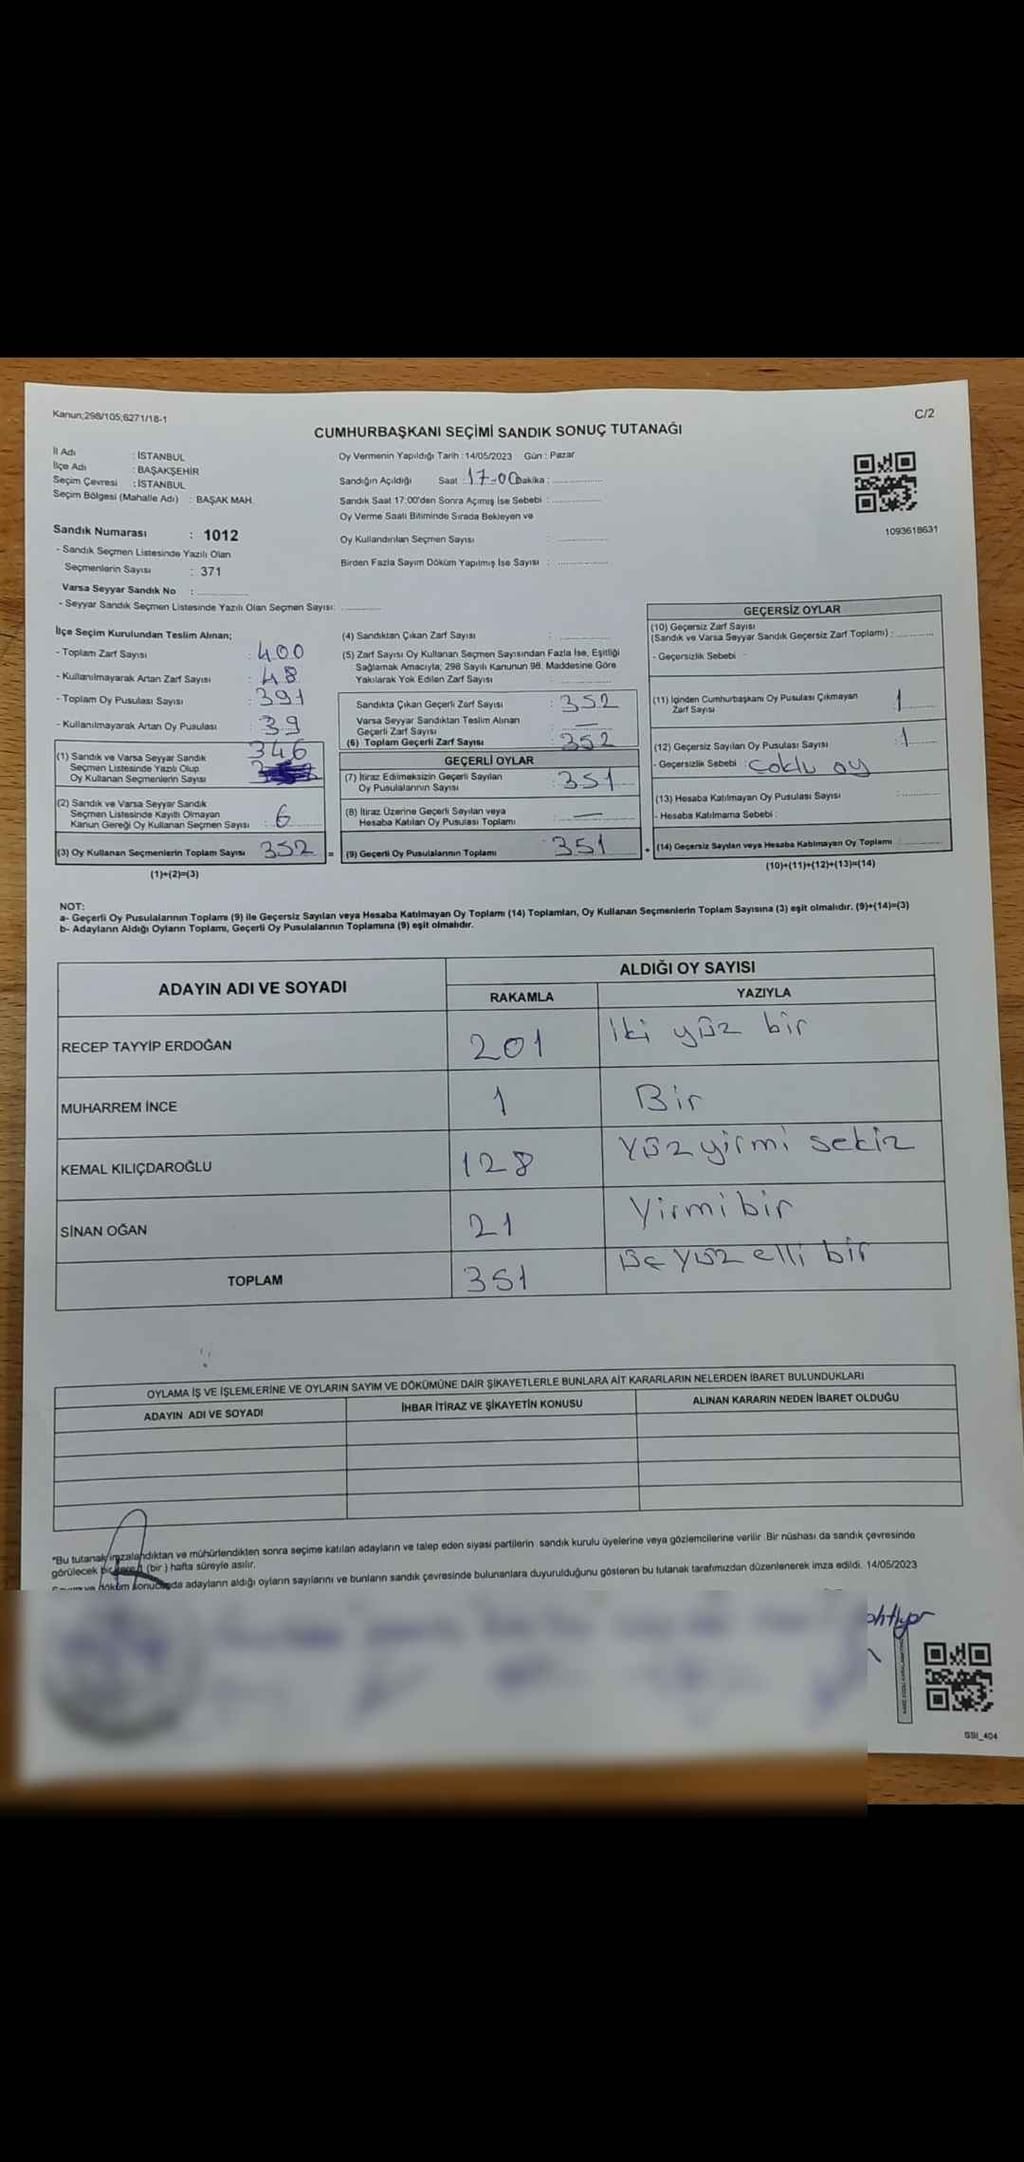 Kanun;298/105;6271/18-1
C/2
CUMHURBAŞKANI SEÇİMİ SANDIK SONUÇ TUTANAĞI
İl Adı : İSTANBUL
İlçe Adı : BAŞAKŞEHİR
Seçim Çevresi : İSTANBUL
Seçim Bölgesi (Mahalle Adı) : BAŞAK MAH.
Oy Vermenin Yapıldığı Tarih : 14/05/2023 Gün : Pazar
Sandığın Açıldığı Saat : 17-00 Dakika :
Sandık Saat 17:00'den Sonra Açımış İse Sebebi :
Oy Verme Saati Bitiminde Sırada Bekleyen ve
Oy Kullandırılan Seçmen Sayısı :
Birden Fazla Sayım Döküm Yapılmış İse Sayısı :
1093618631
Sandık Numarası : 1012
- Sandık Seçmen Listesinde Yazılı Olan
Seçmenlerin Sayısı : 371
Varsa Seyyar Sandık No :
- Seyyar Sandık Seçmen Listesinde Yazılı Olan Seçmen Sayısı:
İlçe Seçim Kurulundan Teslim Alınan;
- Toplam Zarf Sayısı : 400
- Kullanılmayarak Artan Zarf Sayısı : 48
- Toplam Oy Pusulası Sayısı : 391
- Kullanılmayarak Artan Oy Pusulası : 39
(1) Sandık ve Varsa Seyyar Sandık
Seçmen Listesinde Yazılı Olup
Oy Kullanan Seçmenlerin Sayısı 346
(2) Sandık ve Varsa Seyyar Sandık
Seçmen Listesinde Kayıtlı Olmayan
Kanun Gereği Oy Kullanan Seçmen Sayısı : 6
(3) Oy Kullanan Seçmenlerin Toplam Sayısı 352 =
(1)+(2)=(3)
(4) Sandıktan Çıkan Zarf Sayısı :
(5) Zarf Sayısı Oy Kullanan Seçmen Sayısından Fazla İse, Eşitliği
Sağlamak Amacıyla; 298 Sayılı Kanunun 98. Maddesine Göre
Yakılarak Yok Edilen Zarf Sayısı :
Sandıkta Çıkan Geçerli Zarf Sayısı : 352
Varsa Seyyar Sandıktan Teslim Alınan
Geçerli Zarf Sayısı : —
(6) Toplam Geçerli Zarf Sayısı 352
GEÇERLİ OYLAR
(7) İtiraz Edilmeksizin Geçerli Sayılan
Oy Pusulalarının Sayısı : 351
(8) İtiraz Üzerine Geçerli Sayılan veya
Hesaba Katılan Oy Pusulası Toplamı : —
(9) Geçerli Oy Pusulalarının Toplamı 351 +
GEÇERSİZ OYLAR
(10) Geçersiz Zarf Sayısı
(Sandık ve Varsa Seyyar Sandık Geçersiz Zarf Toplamı) :
- Geçersizlik Sebebi :
(11) İçinden Cumhurbaşkanı Oy Pusulası Çıkmayan
Zarf Sayısı : 1
(12) Geçersiz Sayılan Oy Pusulası Sayısı : 1
- Geçersizlik Sebebi : çoklu oy
(13) Hesaba Katılmayan Oy Pusulası Sayısı :
- Hesaba Katılmama Sebebi :
(14) Geçersiz Sayılan veya Hesaba Katılmayan Oy Toplamı :
(10)+(11)+(12)+(13)=(14)
NOT:
a- Geçerli Oy Pusulalarının Toplamı (9) ile Geçersiz Sayılan veya Hesaba Katılmayan Oy Toplamı (14) Toplamları, Oy Kullanan Seçmenlerin Toplam Sayısına (3) eşit olmalıdır. (9)+(14)=(3)
b- Adayların Aldığı Oyların Toplamı, Geçerli Oy Pusulalarının Toplamına (9) eşit olmalıdır.
ADAYIN ADI VE SOYADI
ALDIĞI OY SAYISI
RAKAMLA YAZIYLA
RECEP TAYYİP ERDOĞAN 201 iki yüz bir
MUHARREM İNCE 1 Bir
KEMAL KILIÇDAROĞLU 128 Yüz yirmi sekiz
SİNAN OĞAN 21 Yirmi bir
TOPLAM 351 Üç yüz elli bir
OYLAMA İŞ VE İŞLEMLERİNE VE OYLARIN SAYIM VE DÖKÜMÜNE DAİR ŞİKAYETLERLE BUNLARA AİT KARARLARIN NELERDEN İBARET BULUNDUKLARI
ADAYIN ADI VE SOYADI İHBAR İTİRAZ VE ŞİKAYETİN KONUSU ALINAN KARARIN NEDEN İBARET OLDUĞU
*Bu tutanak imzalandıktan ve mühürlendikten sonra seçime katılan adayların ve talep eden siyasi partilerin sandık kurulu üyelerine veya gözlemcilerine verilir. Bir nüshası da sandık çevresinde
görülecek bir yerde (bir) hafta süreyle asılır.
döküm sonucunda adayların aldığı oyların sayılarını ve bunların sandık çevresinde bulunanlara duyurulduğunu gösteren bu tutanak tarafımızdan düzenlenerek imza edildi. 14/05/2023
GSI_404